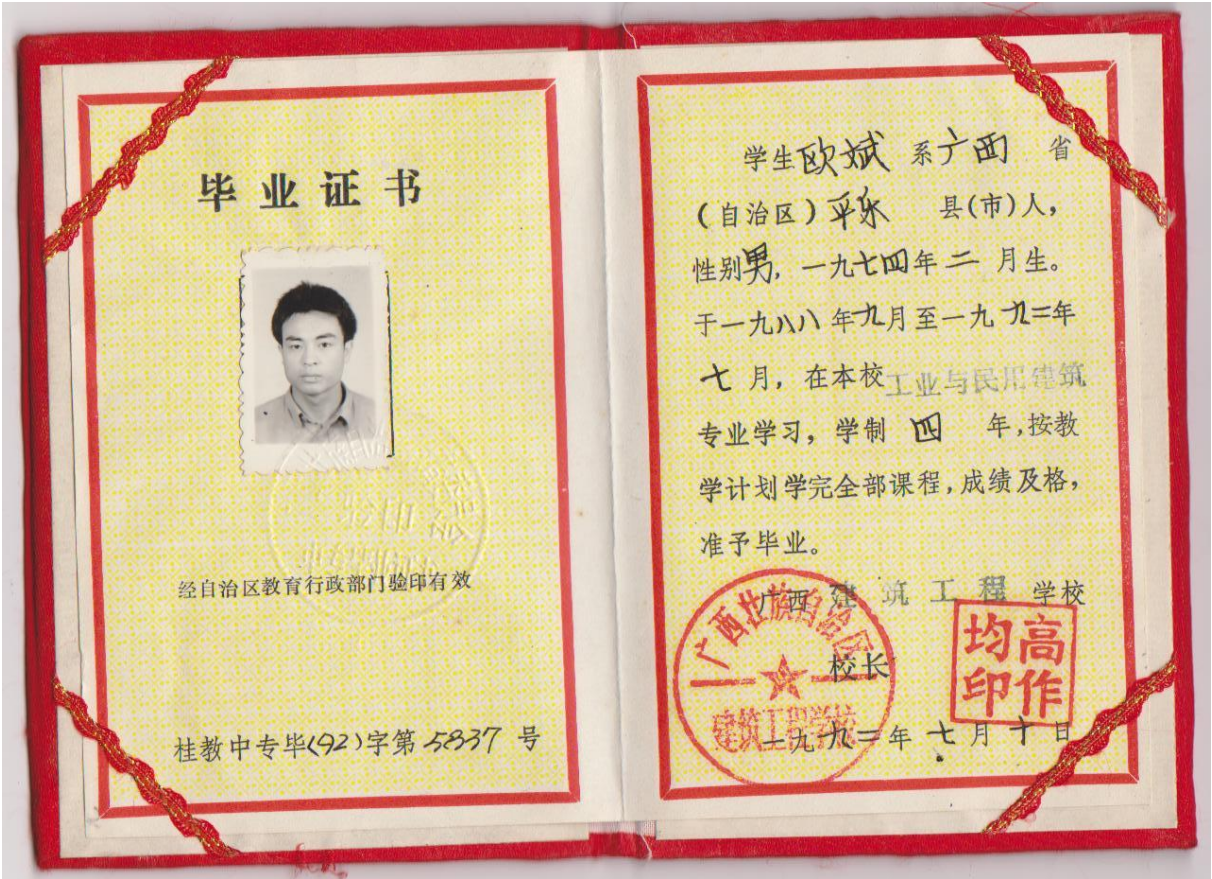 毕业证书
经自治区教育行政部门验印有效
桂教中专毕(92)字第5837号
学生欧斌 系广西 省
(自治区)平乐 县(市)人,
性别男,一九七四年二 月生。
于一九八八年九月至一九九二年
七月,在本校工业与民用建筑
专业学习,学制 四 年,按教
学计划学完全部课程,成绩及格,
准予毕业。
广西 建筑工程 学校
校长
高作均印
一九九二年七月十日
广西壮族自治区
建筑工程学校